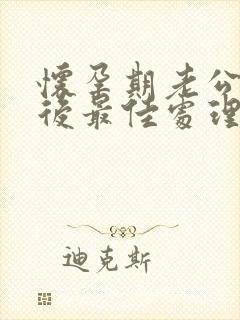 懷孕期老公
後最佳處理
迪克斯